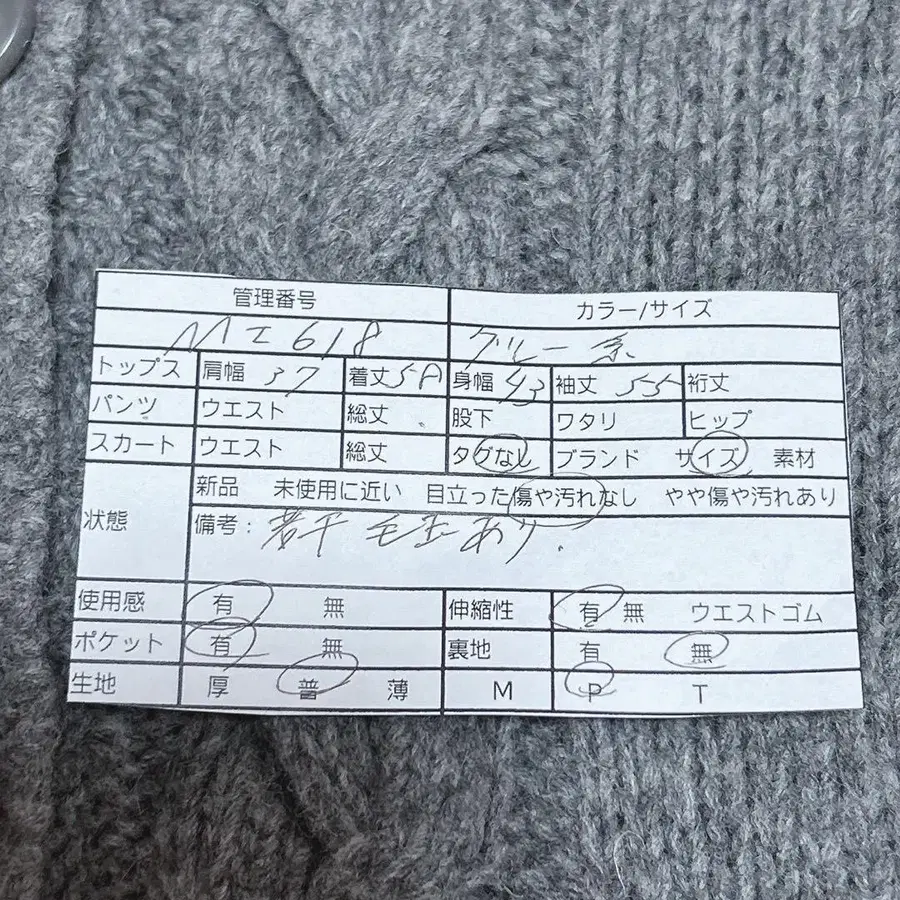 管理番号 カラー/サイズ
MI618 グレー系
トップス 肩幅 37 着丈 身幅 43 袖丈 55 裄丈
パンツ ウエスト 総丈 股下 ワタリ ヒップ
スカート ウエスト 総丈 タグなし ブランド サイズ 素材
新品 未使用に近い 目立った傷や汚れなし やや傷や汚れあり
状態 備考: 若干毛玉あり.
使用感 有 無 伸縮性 有 無 ウエストゴム
ポケット 有 無 裏地 有 無
生地 厚 普 薄 M P T